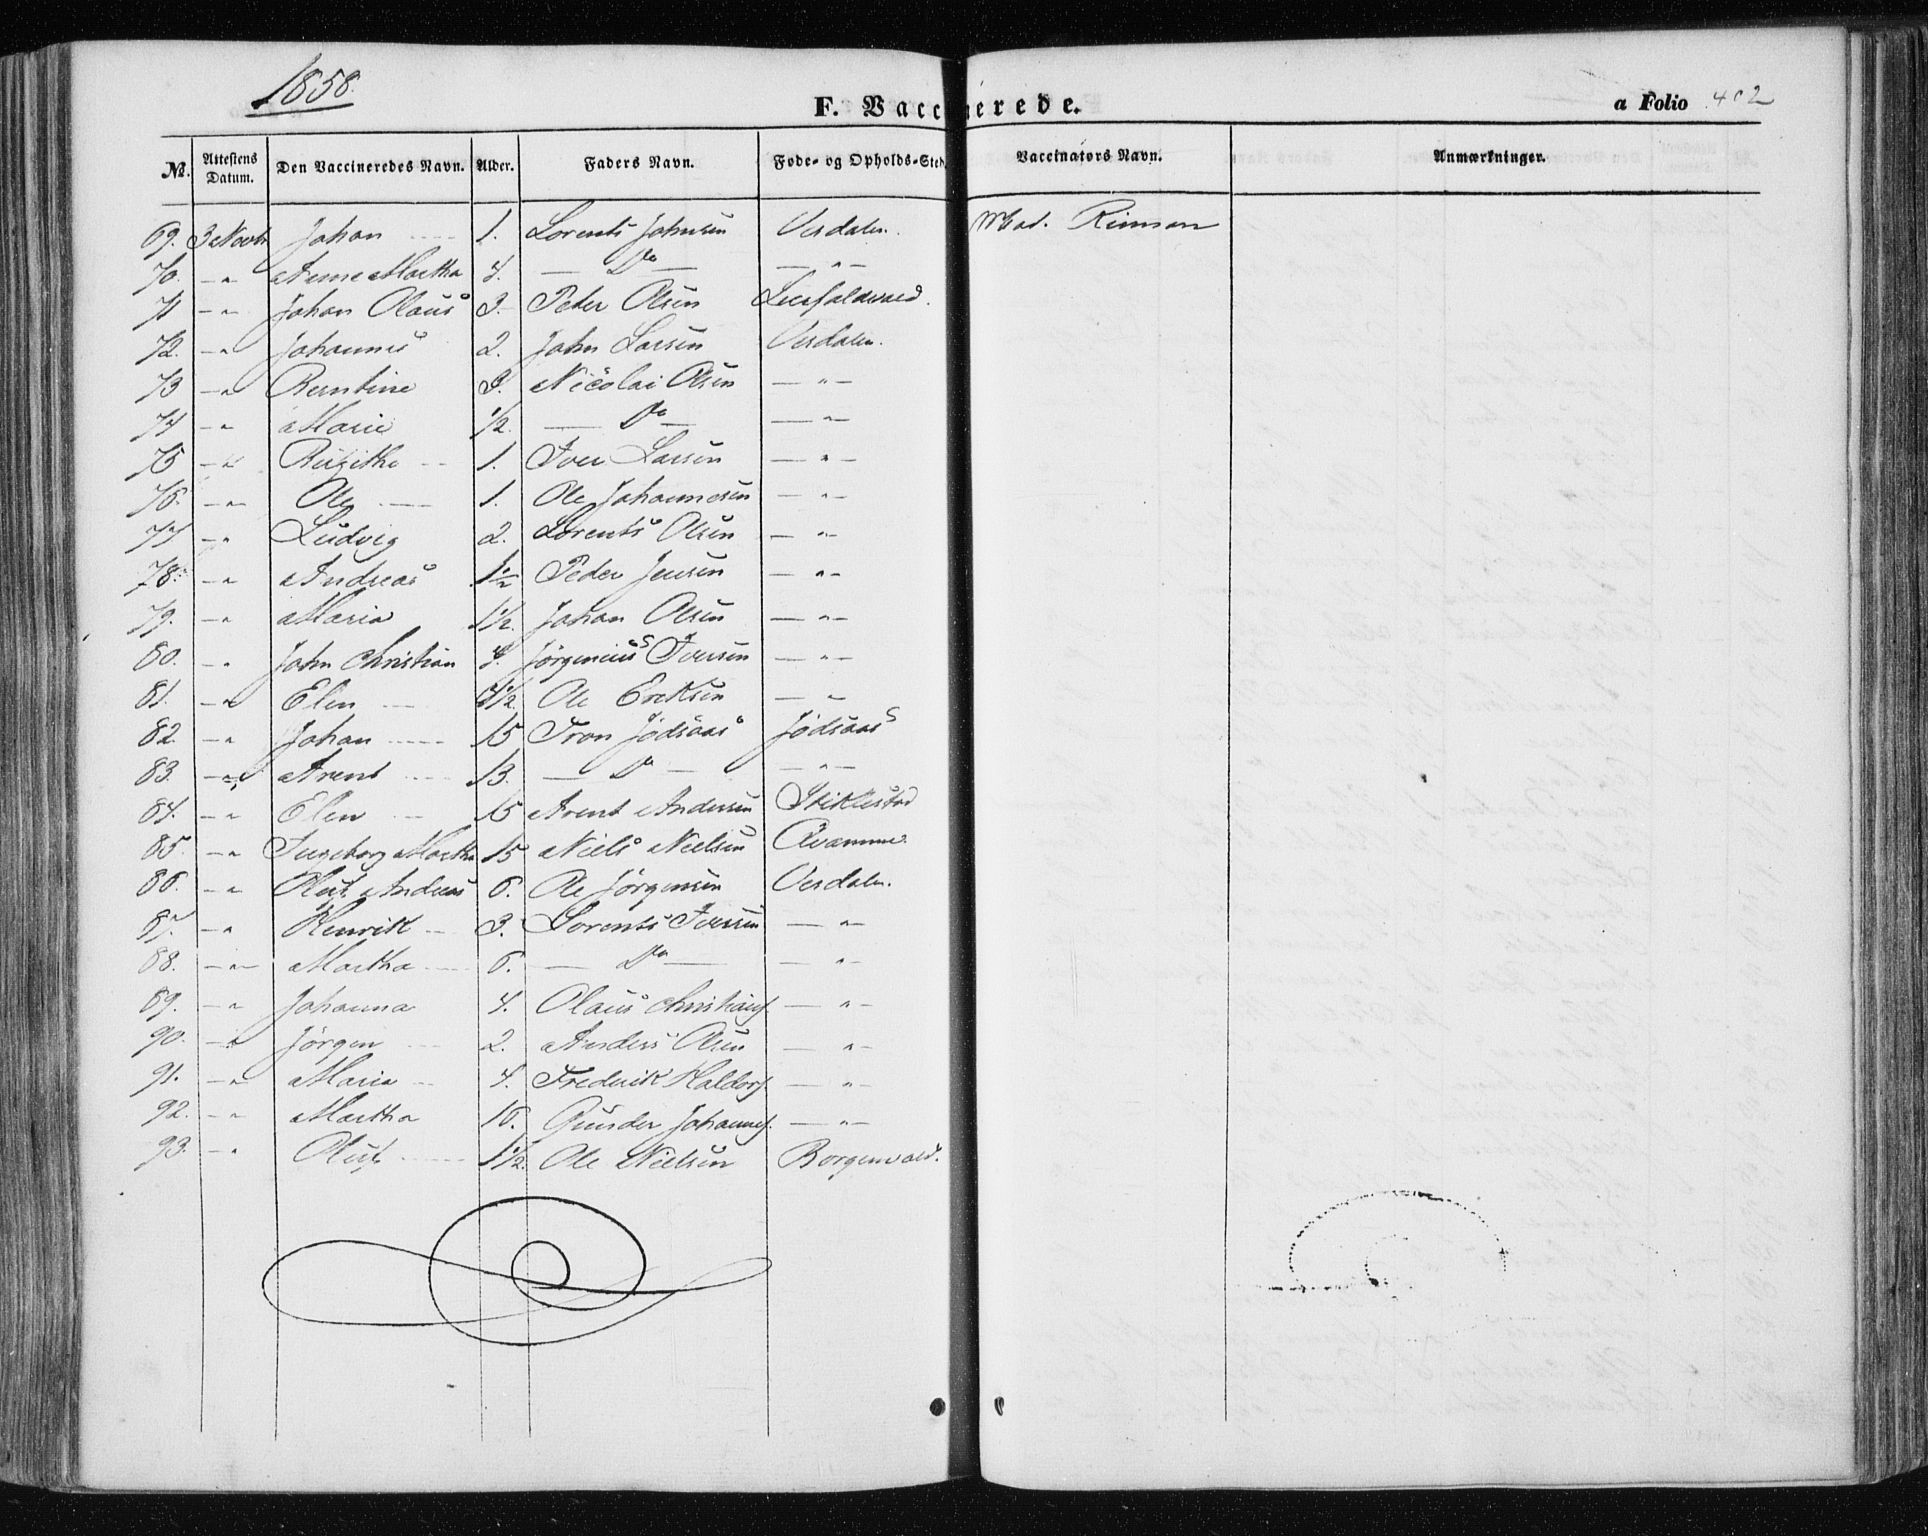 1858.
F. Vaccinerede.
a Folio 402
No. Attestens Datum. Den Vaccineredes Navn. Alder. Faders Navn. Føde- og Opholds-Sted. Vaccinators Navn. Anmærkninger.
69. 3 Novbr Johan 1. Lorents Johnsen Verdalen. Mad. Rimsan
70. -"- Anne Martha 4. — Do — — " —
71 -"- Johan Olaus 3. Peter Olsen
72. -"- Johannes 2. John Larsen Verdalen.
73 -"- Berntine 3. Nicolai Olsen — " —
74 -"- Marie 1/2. — Do — — " —
75 -"- Birgithe 1. Iver Larsen — " —
76. -"- Ole 1. Ole Johannesen — " —
77. -"- Ludvig 2. Lorents Olsen — " —
78. -"- Andreas 1 1/2 Peder Jensen — " —
79. -"- Maria 1 1/2. Johan Olsen — " —
80. -"- John Christian 4. Jørgenius Iversen — " —
81. -"- Elen 1/2. Ole Ericksen — " —
82. -"- Johan 15 Tron Jødsaas Jødsaas
83. -"- Arent 13. — Do — — " —
84. -"- Elen 15 Arent Andersen Stiklestad
85. -"- Ingeborg Martha 15 Niels Nielsen Qvamme
86. -"- Oluf Andreas 6. Ole Jørgensen Verdalen.
87. -"- Henrik 3. Lorents Iversen — " —
88. -"- Martha 6. — Do — — " —
89. -"- Johanna 4. Olaus Christians. — " —
90. -"- Jørgen 2. Anders Olsen — " —
91. -"- Maria 4. Frederik Haldors. — " —
92. -"- Martha 10. Gunder Johannes. — " —
93. -"- Oluf 1 1/2. Ole Nielsen Borgenvald.